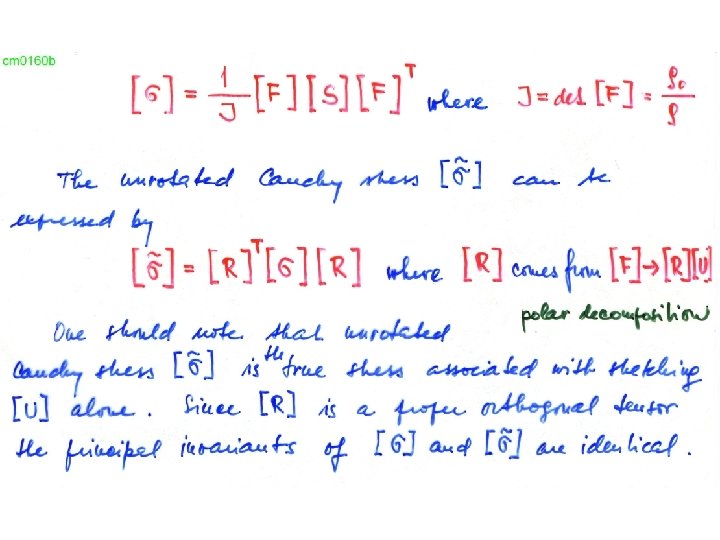 cm0160b
[σ] = 1/J [F][S][F]^T where J = det [F] = ρ₀/ρ
The unrotated Cauchy stress [σ̃] can be
expressed by
[σ̃] = [R]^T[σ][R] where [R] comes from [F]→[R][U]
polar decomposition
One should note that unrotated
Cauchy stress [σ̃] is the true stress associated with stretching
[U] alone. Since [R] is a proper orthogonal tensor
the principal invariants of [σ] and [σ̃] are identical.